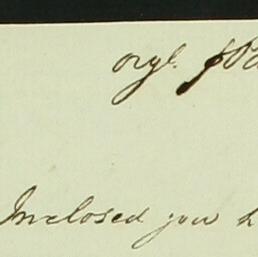 orgl.
Inclosed you h